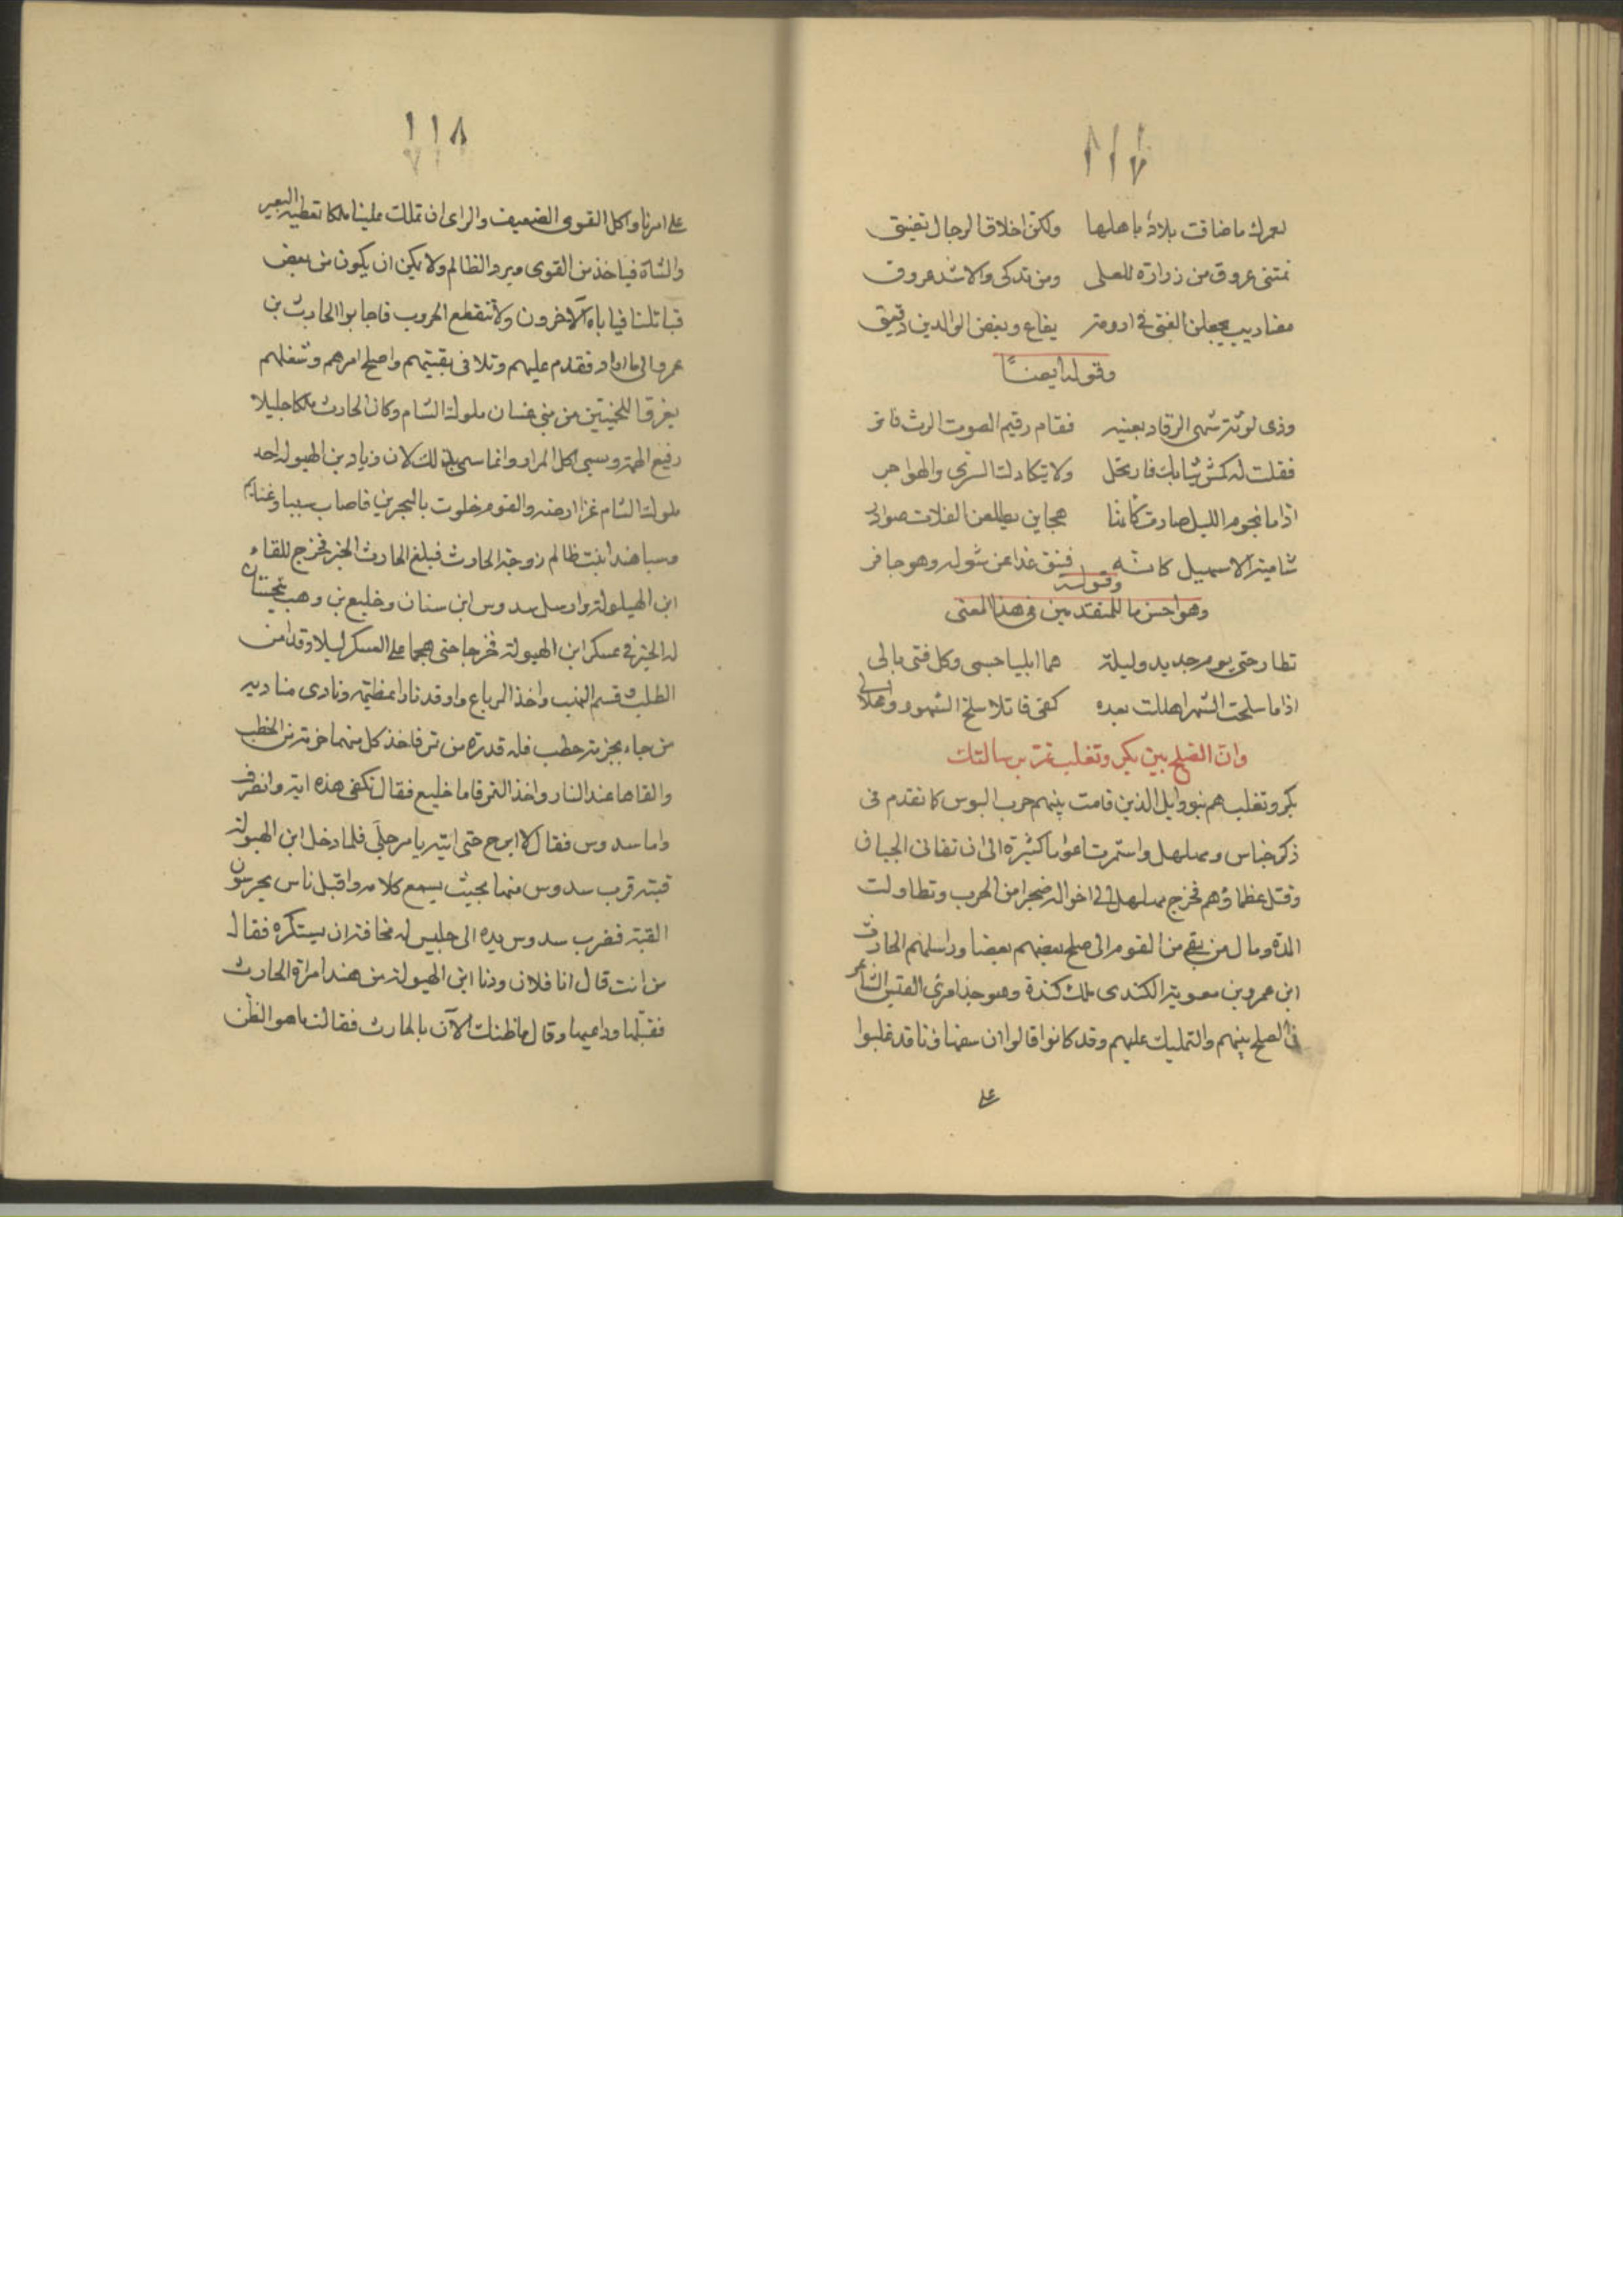 ١١٧
لعمرك ما ضاقت بلاد باهلها ولكن اخلاق الرجال تضيق
نمتنى عروق من زرارة للعلى ومن تدكى والاشد عروق
مضاديب يجعلن الفتى فى ارومة يفاع وبعض الوالدين دقيق
وقوله ايضاً
وذى لوثة شهى الرقاد بعينه فقام رقيم الصوت الرث فاتر
فقلت له كمش ثيابك فارتحل ولا يتكادك السرى والهواجر
اذا ما نجوم الليل صارت كانها هجاين يطلعن الفلات صوادر
شامية الا سهيل كانه فنيق غدا عن شوله وهو جافر
وقوله
وهو احسن ما للمتقدمين فى هذا المعنى
تطارحتى يوم جديد وليلة هما ابليا جسمى وكل فتى بالى
اذا ما سلخت الشهر اهللت بعده كفى قاتلا سلخ الشهور واهلالى
وان الصلح بين بكر وتغلب تم برسالتك
بكر وتغلب هم بنو وايل الذين قامت بينهم حرب البوس كا تقدم فى
ذكر جناس ومهلهل واستمرت اعواما كثيرة الى ان تفانى الجيان
وقتل عظماؤهم فخرج مهلهل الى اخواله ضجرا من الحرب وتطاولت
المدة ومال من بقى من القوم الى صلح بعضهم بعضا وراسلهم الحارث
ابن عمرو بن معوية الكندى ملك كندة وهو جد امرئ القيس الشاعر
فى الصلح بينهم والتمليك عليهم وقد كانوا قالوا ان سفهاؤنا قد غلبوا
على
١١٨
على امرنا واكل القوى الضعيف والراى ان نملك علينا ملكا نعطيه البعير
والشاة فياخذ من القوى ويرد الظالم ولا يمكن ان يكون من بعض
قبائلنا فيأباه الآخرون ولا تنقطع الحروب فاجابوا الحارث بن
عمرو الى ما اراد فقدم عليهم وتلافى بقيتهم واصلح امرهم وشغلهم
بغزو اللخميين من بنى غسان ملوك الشام وكان الحارث ملكا جليلا
رفيع الهمة ويسمى اكل المرار وانما سمى بذلك لان زياد بن الهيولة احد
ملوك الشام غزا ارضه والقوم خلوت بالبحرين فاصاب سبيا وغنايم
وسبا هندا بنت ظالم زوجة الحارث فبلغ الحارث الخبر فخرج للقاء
ابن الهيلولة وارسل سدوس ابن سنان وخليع بن وهب يتجسسان
له الخبر فى عسكر ابن الهيولة فخرجا حتى هجما على العسكر ليلا وقد امن
الطلب فقسم النهب واخذ المرباع واوقد نارا عظيمة ونادى مناديه
من جاء بحزمة حطب فله قدرة من تمر فاخذ كل منهما حزمة من الحطب
والقاها عند النار واخذ التمر فاما خليع فقال تكفى هذه اية وانصرف
واما سدوس فقال لا ابرح حتى اتيه بامر جلى فلما دخل ابن الهيولة
قبته قرب سدوس منها بحيث يسمع كلامه واقبل ناس يحرسون
القبة فضرب سدوس يده الى جليس له مخافة ان يستنكره فقال
من انت قال انا فلان ودنا ابن الهيولة من هند امراة الحارث
فقبلها وداعبها وقال ما ظنك الآن بالحارث فقالت ما هو الظن